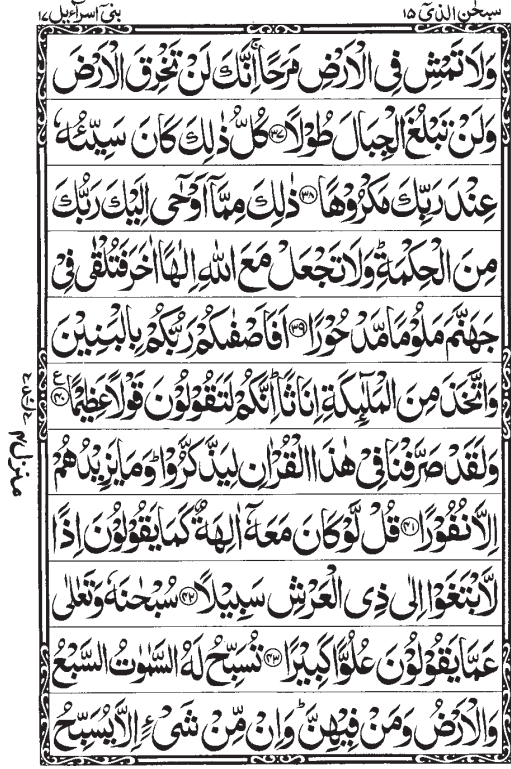 سبحٰن الذیٓ ١٥
بنیٓ اسرآءیل ١٧
وَلَا تَمْشِ فِی الْاَرْضِ مَرَحًا ۚ اِنَّكَ لَنْ تَخْرِقَ الْاَرْضَ
وَلَنْ تَبْلُغَ الْجِبَالَ طُوْلًا ﴿٣٧﴾ كُلُّ ذٰلِكَ كَانَ سَیِّئُهٗ
عِنْدَ رَبِّكَ مَكْرُوْهًا ﴿٣٨﴾ ذٰلِكَ مِمَّاۤ اَوْحٰۤی اِلَیْكَ رَبُّكَ
مِنَ الْحِكْمَةِ ؕ وَلَا تَجْعَلْ مَعَ اللّٰهِ اِلٰهًا اٰخَرَ فَتُلْقٰی فِیْ
جَهَنَّمَ مَلُوْمًا مَّدْحُوْرًا ﴿٣٩﴾ اَفَاَصْفٰىكُمْ رَبُّكُمْ بِالْبَنِیْنَ
وَاتَّخَذَ مِنَ الْمَلٰٓىِٕكَةِ اِنَاثًا ؕ اِنَّكُمْ لَتَقُوْلُوْنَ قَوْلًا عَظِیْمًا ﴿٤٠﴾ ع
وَلَقَدْ صَرَّفْنَا فِیْ هٰذَا الْقُرْاٰنِ لِیَذَّكَّرُوْا ؕ وَمَا یَزِیْدُهُمْ
اِلَّا نُفُوْرًا ﴿٤١﴾ قُلْ لَّوْ كَانَ مَعَهٗۤ اٰلِهَةٌ كَمَا یَقُوْلُوْنَ اِذًا
لَّابْتَغَوْا اِلٰی ذِی الْعَرْشِ سَبِیْلًا ﴿٤٢﴾ سُبْحٰنَهٗ وَتَعٰلٰی
عَمَّا یَقُوْلُوْنَ عُلُوًّا كَبِیْرًا ﴿٤٣﴾ تُسَبِّحُ لَهُ السَّمٰوٰتُ السَّبْعُ
وَالْاَرْضُ وَمَنْ فِیْهِنَّ ؕ وَاِنْ مِّنْ شَیْءٍ اِلَّا یُسَبِّحُ
منزل ۴